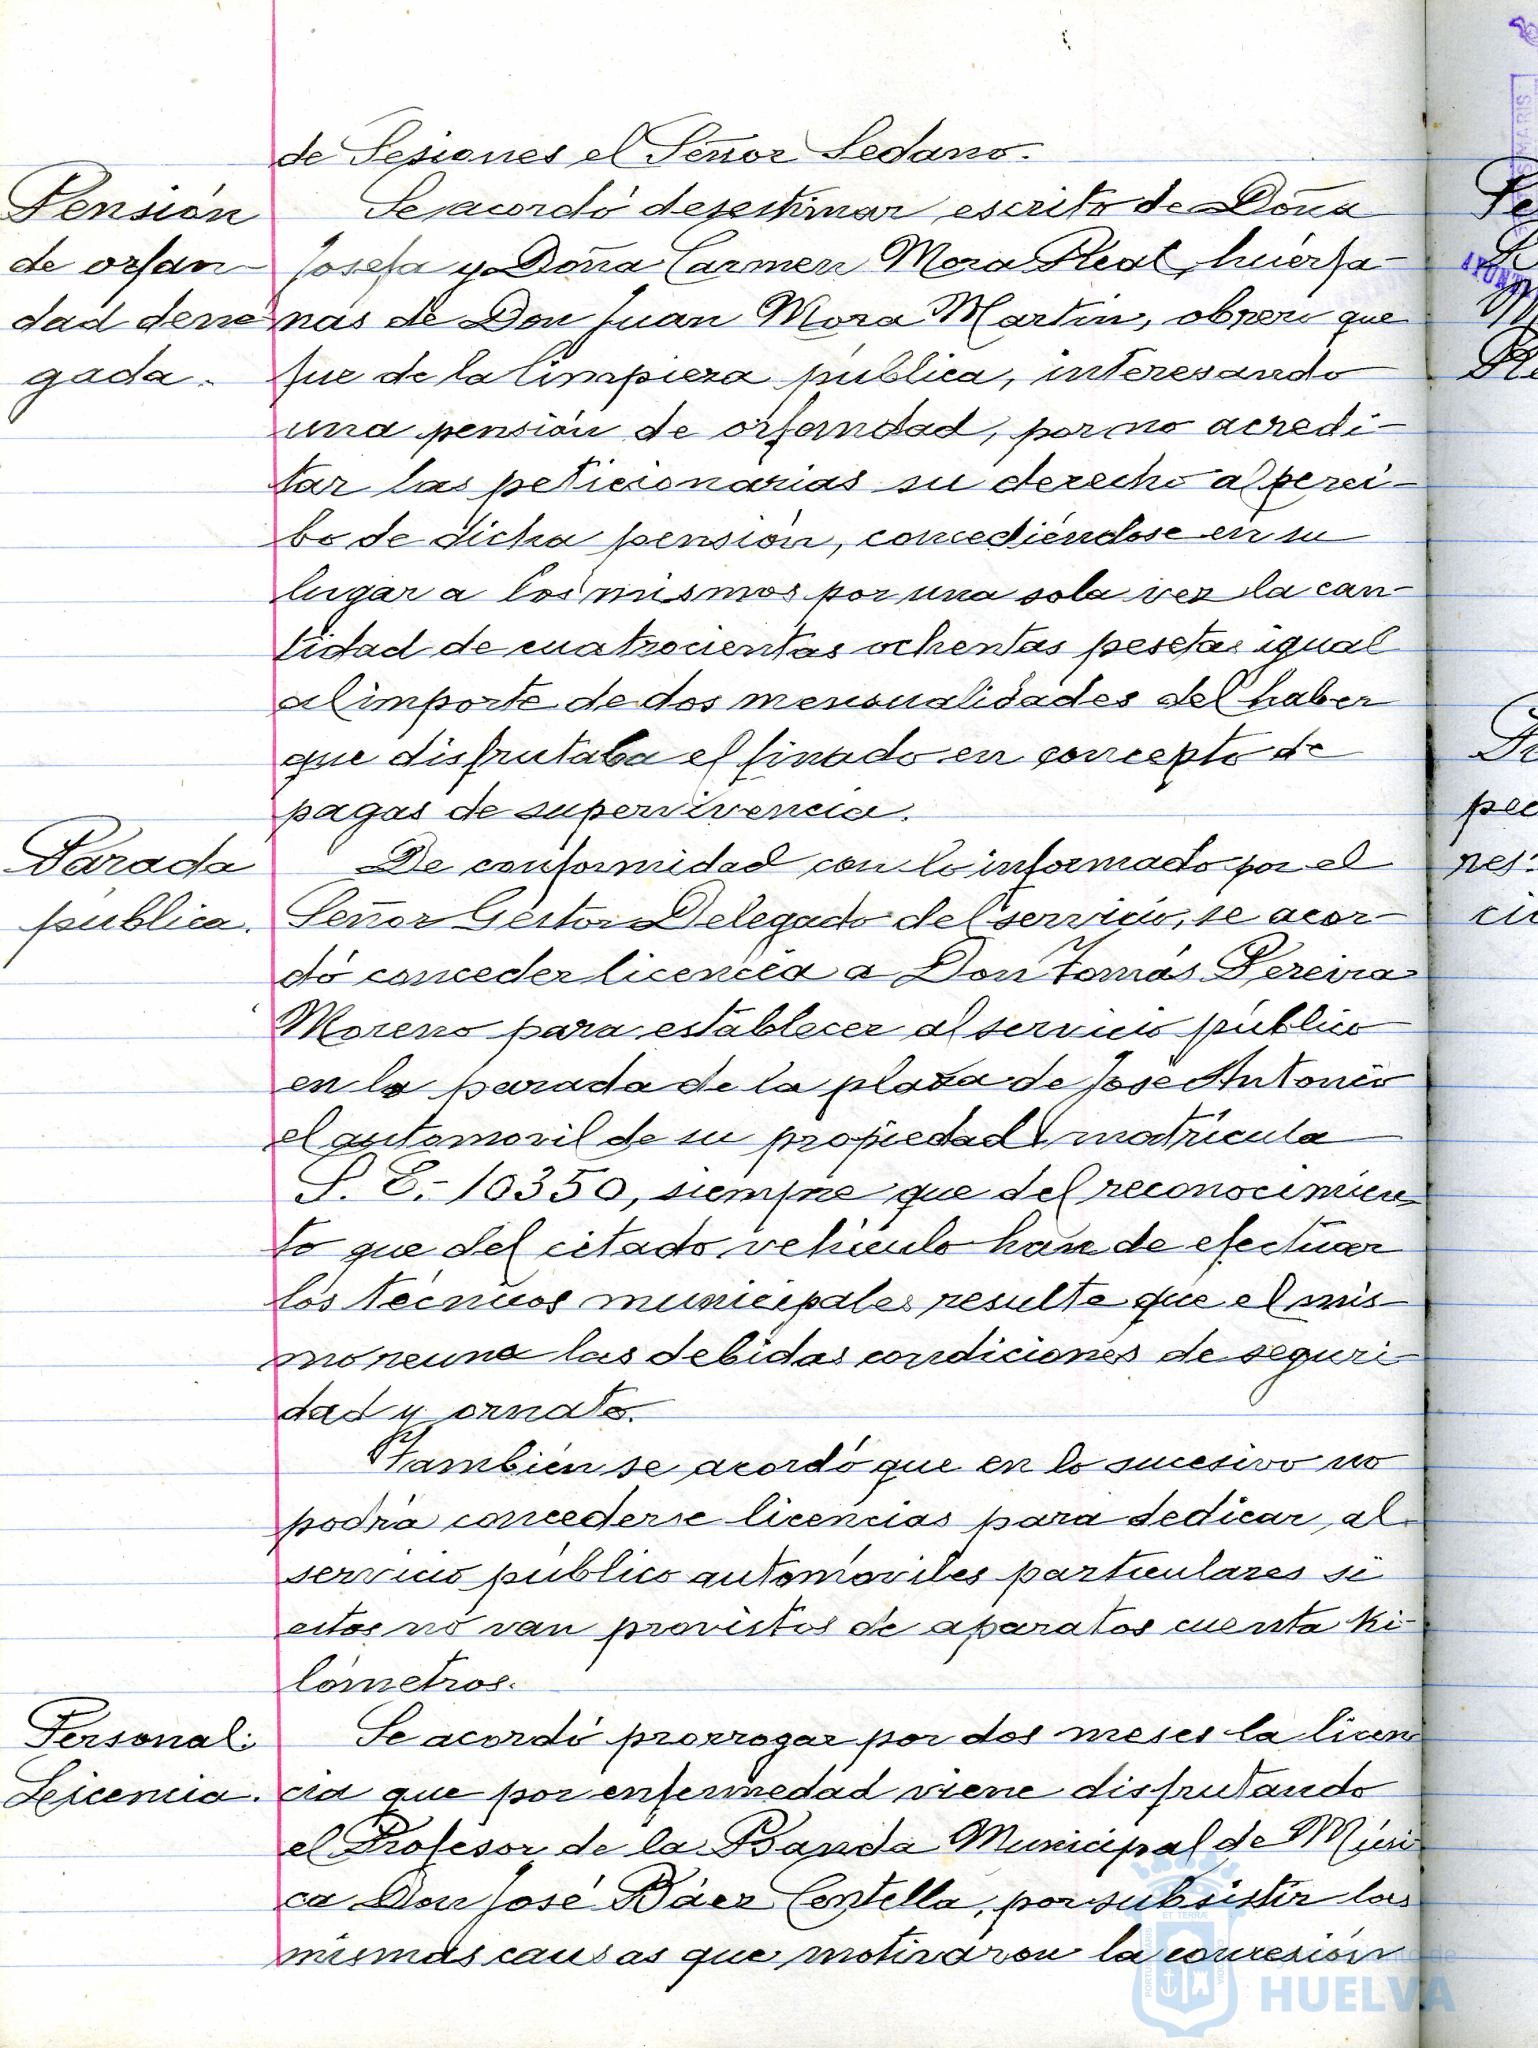 de Sesiones el Señor Sedano.
Pensión
de orfan-
dad dene
gada.
Se acordó desestimar escrito de Doña
Josefa y Doña Carmen Mora Real, huérfa-
nas de Don Juan Mora Martín, obrero que
fue de la limpieza pública, interesando
una pensión de orfandad, por no acredi-
tar las peticionarias su derecho al perci-
bo de dicha pensión, concediéndose en su
lugar a los mismos por una sola vez la can-
tidad de cuatrocientas ochentas pesetas igual
al importe de dos mensualidades del haber
que disfrutaba el finado en concepto de
pagas de supervivencia.
Parada
pública.
De conformidad con lo informado por el
Señor Gestor Delegado del servicio, se acor-
dó conceder licencia a Don Tomás Pereira
Moreno para establecer al servicio público
en la parada de la plaza de José Antonio
el automovil de su propiedad matrícula
S. E.- 10350, siempre que del reconocimien-
to que del citado vehículo han de efectuar
los técnicos municipales resulte que el mis-
mo reuna las debidas condiciones de seguri-
dad y ornato.
También se acordó que en lo sucesivo no
podrá concederse licencias para dedicar al
servicio público automóviles particulares si
estos no van provistos de aparatos cuenta ki-
lómetros.
Personal:
Licencia.
Se acordó prorrogar por dos meses la licen
cia que por enfermedad viene disfrutando
el Profesor de la Banda Municipal de Músi
ca Don José Báez Centella, por subsistir las
mismas causas que motivaron la concesión
HUELVA